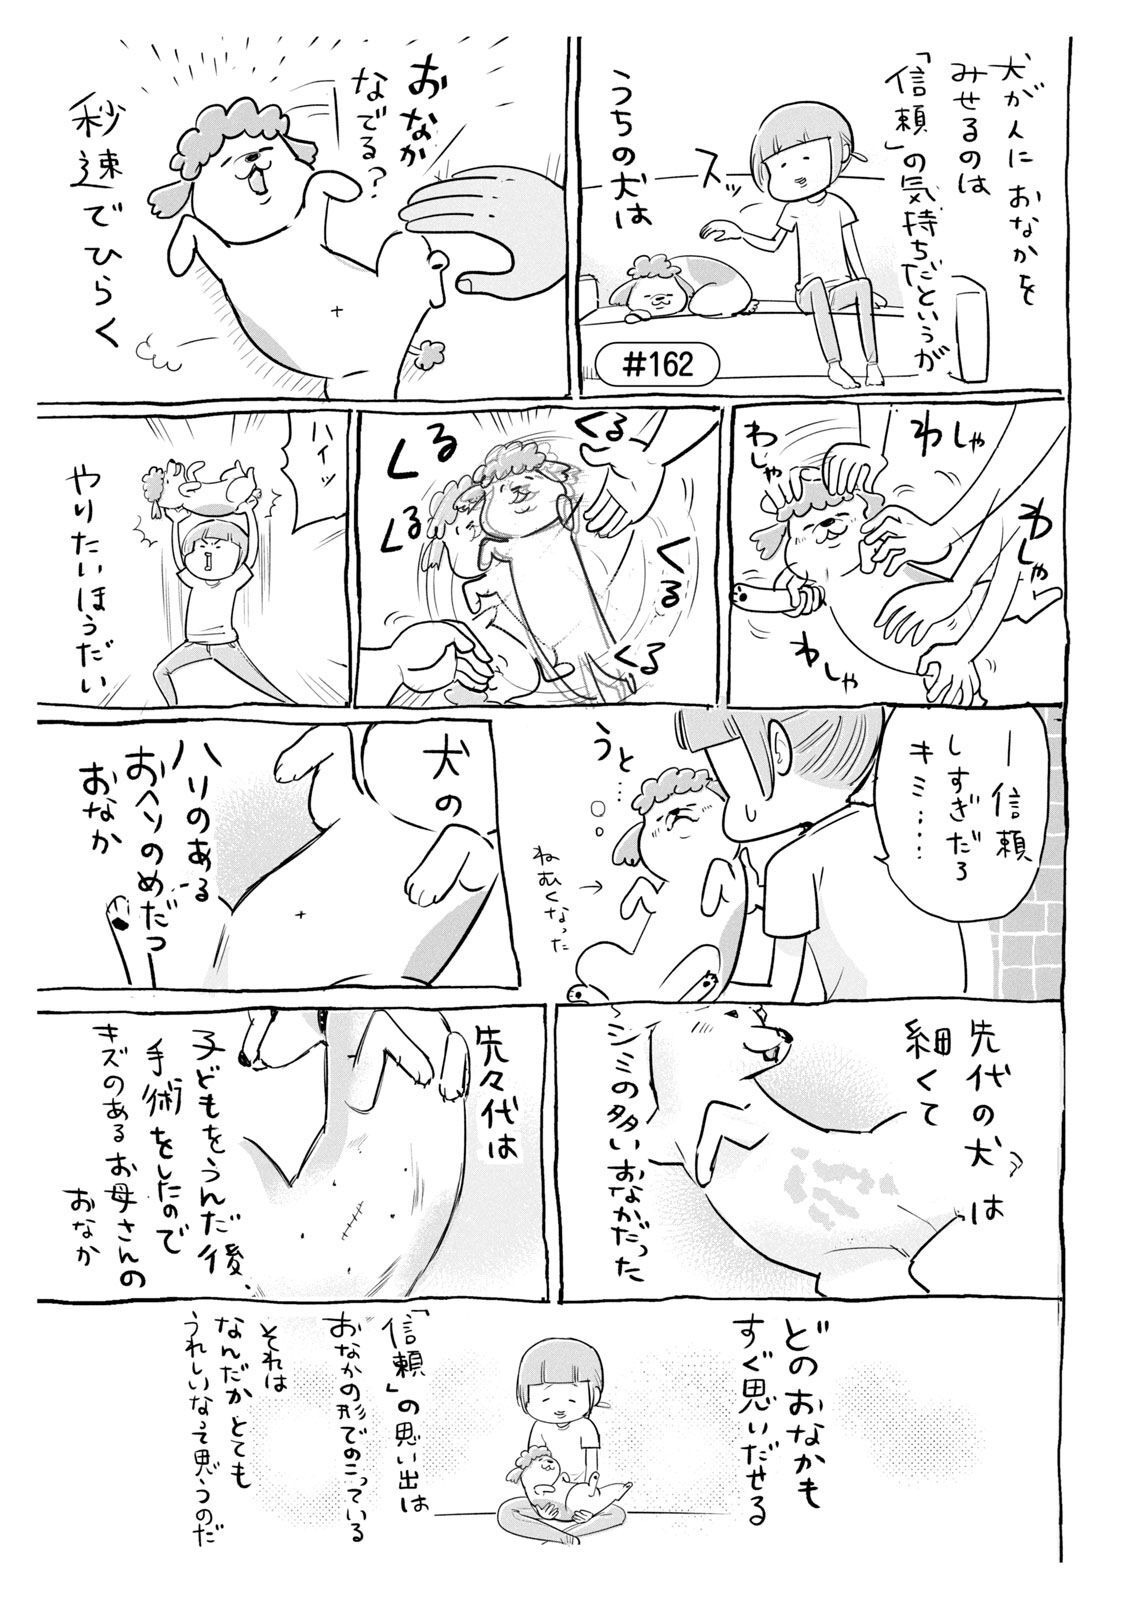 犬が人におなかを
みせるのは
「信頼」の気持ちだというが
スッ
うちの犬は
#162
おなか
なでる?
秒速でひらく
わしゃ
わしゃ
わしゃ
わしゃ
くる
くる
くる
くる
くる
ハイッ
やりたいほうだい
信頼
しすぎだろ
キミ……
うと…
ねむくなった
犬の
ハリのある
おヘソのめだつ
おなか
先代の犬は
細くて
シミの多いおなかだった
先々代は
子どもをうんだ後、
手術をしたので
キズのあるお母さんの
おなか
どのおなかも
すぐ思いだせる
「信頼」の思い出は
おなかの形でのこっている
それは
なんだかとても
うれしいなって思うのだ